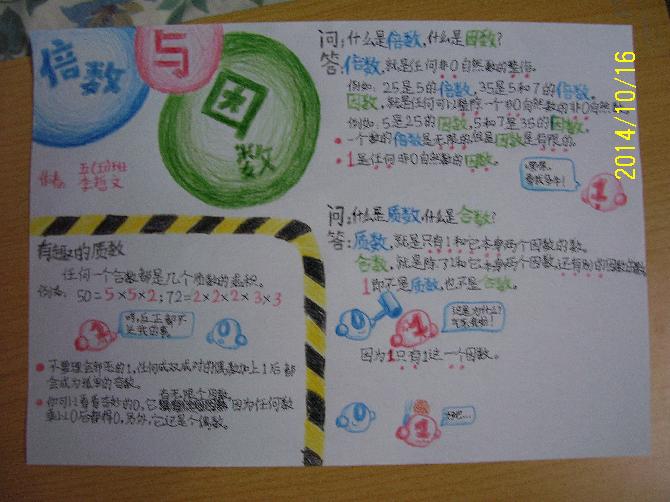 倍数
与
因数
作者:
五(五)班
李哲文
问:什么是倍数,什么是因数?
答:倍数,就是任何非0自然数的整倍。
例如:25是5的倍数,35是5和7的倍数。
因数,就是任何可以整除一个非0自然数的非0自然数
例如:5是25的因数,5和7是35的因数。
一个数的倍数是无限的,但是因数是有限的。
1是任何非0自然数的因数。
1
问:什么是质数,什么是合数?
答:质数,就是只有1和它本身两个因数的数。
合数,就是除了1和它本身两个因数,还有别的因数的数
1即不是质数,也不是合数。
这是为什么?
1
因为1只有1这一个因数。
1
有趣的质数
任何一个合数都是几个质数的乘积。
例如:50=5×5×2;72=2×2×2×3×3
1
0
不要理会邪恶的1,任何成双成对的偶数加上1后都
会成为孤单的奇数。
有无限个因数,
你可以看看奇妙的0,它因为任何数
乘以0后都得0,另外,它还是个偶数。
2014/10/16